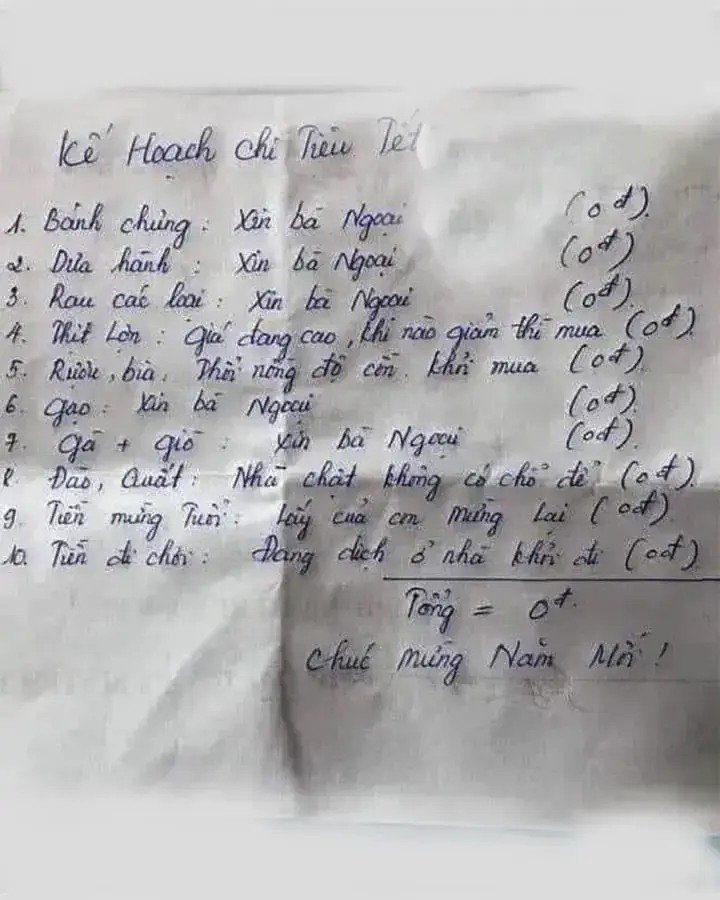 Kế Hoạch chi Tiêu Tết
1. Bánh chưng : Xin bà Ngoại (0đ).
2. Dưa hành : Xin bà Ngoại (0đ)
3. Rau các loại : Xin bà Ngoại (0đ).
4. Thịt Lợn : giá đang cao, khi nào giảm thì mua (0đ).
5. Rượu, bia, Thổi nồng độ cồn. khỏi mua (0đ).
6. Gạo : Xin bà Ngoại (0đ).
7. gà + giò : Xin bà Ngoại (0đ).
8. Đào, Quất : Nhà chật không có chỗ để (0đ).
9. Tiền mừng Tuổi : Lấy của con mừng lại (0đ).
10. Tiền đi chơi : Đang dịch ở nhà khỏi đi (0đ)
Tổng = 0đ.
Chúc mừng Năm Mới !